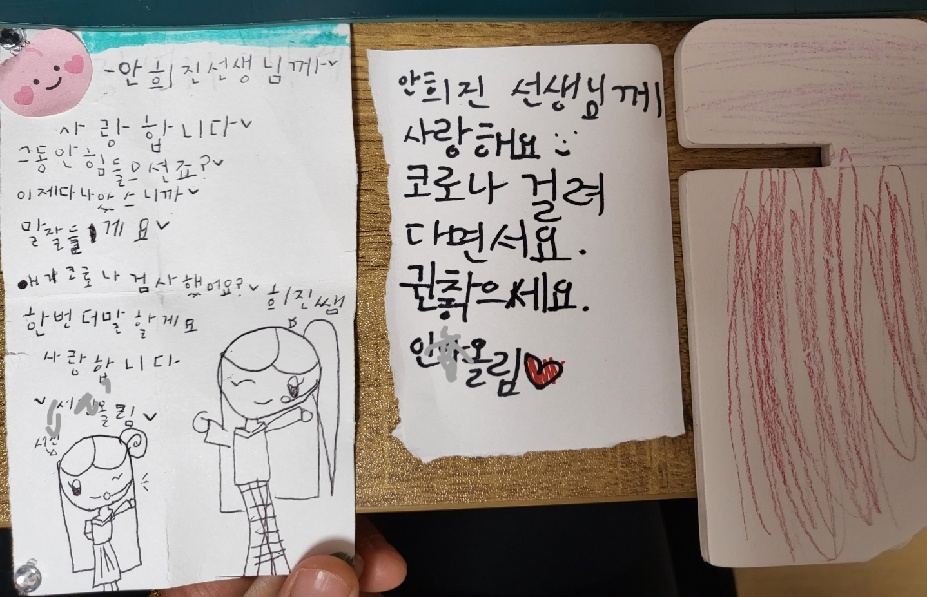 -안희진선생님께-
사랑합니다
그동안힘들으션죠?
이제다나았스니까
말잘들게요
코로나검사했어요?
한번더말할게요
사랑합니다
올림
희진쌤
안희진 선생님께
사랑해요
코로나 걸려
다면서요.
괜찮으세요.
올림